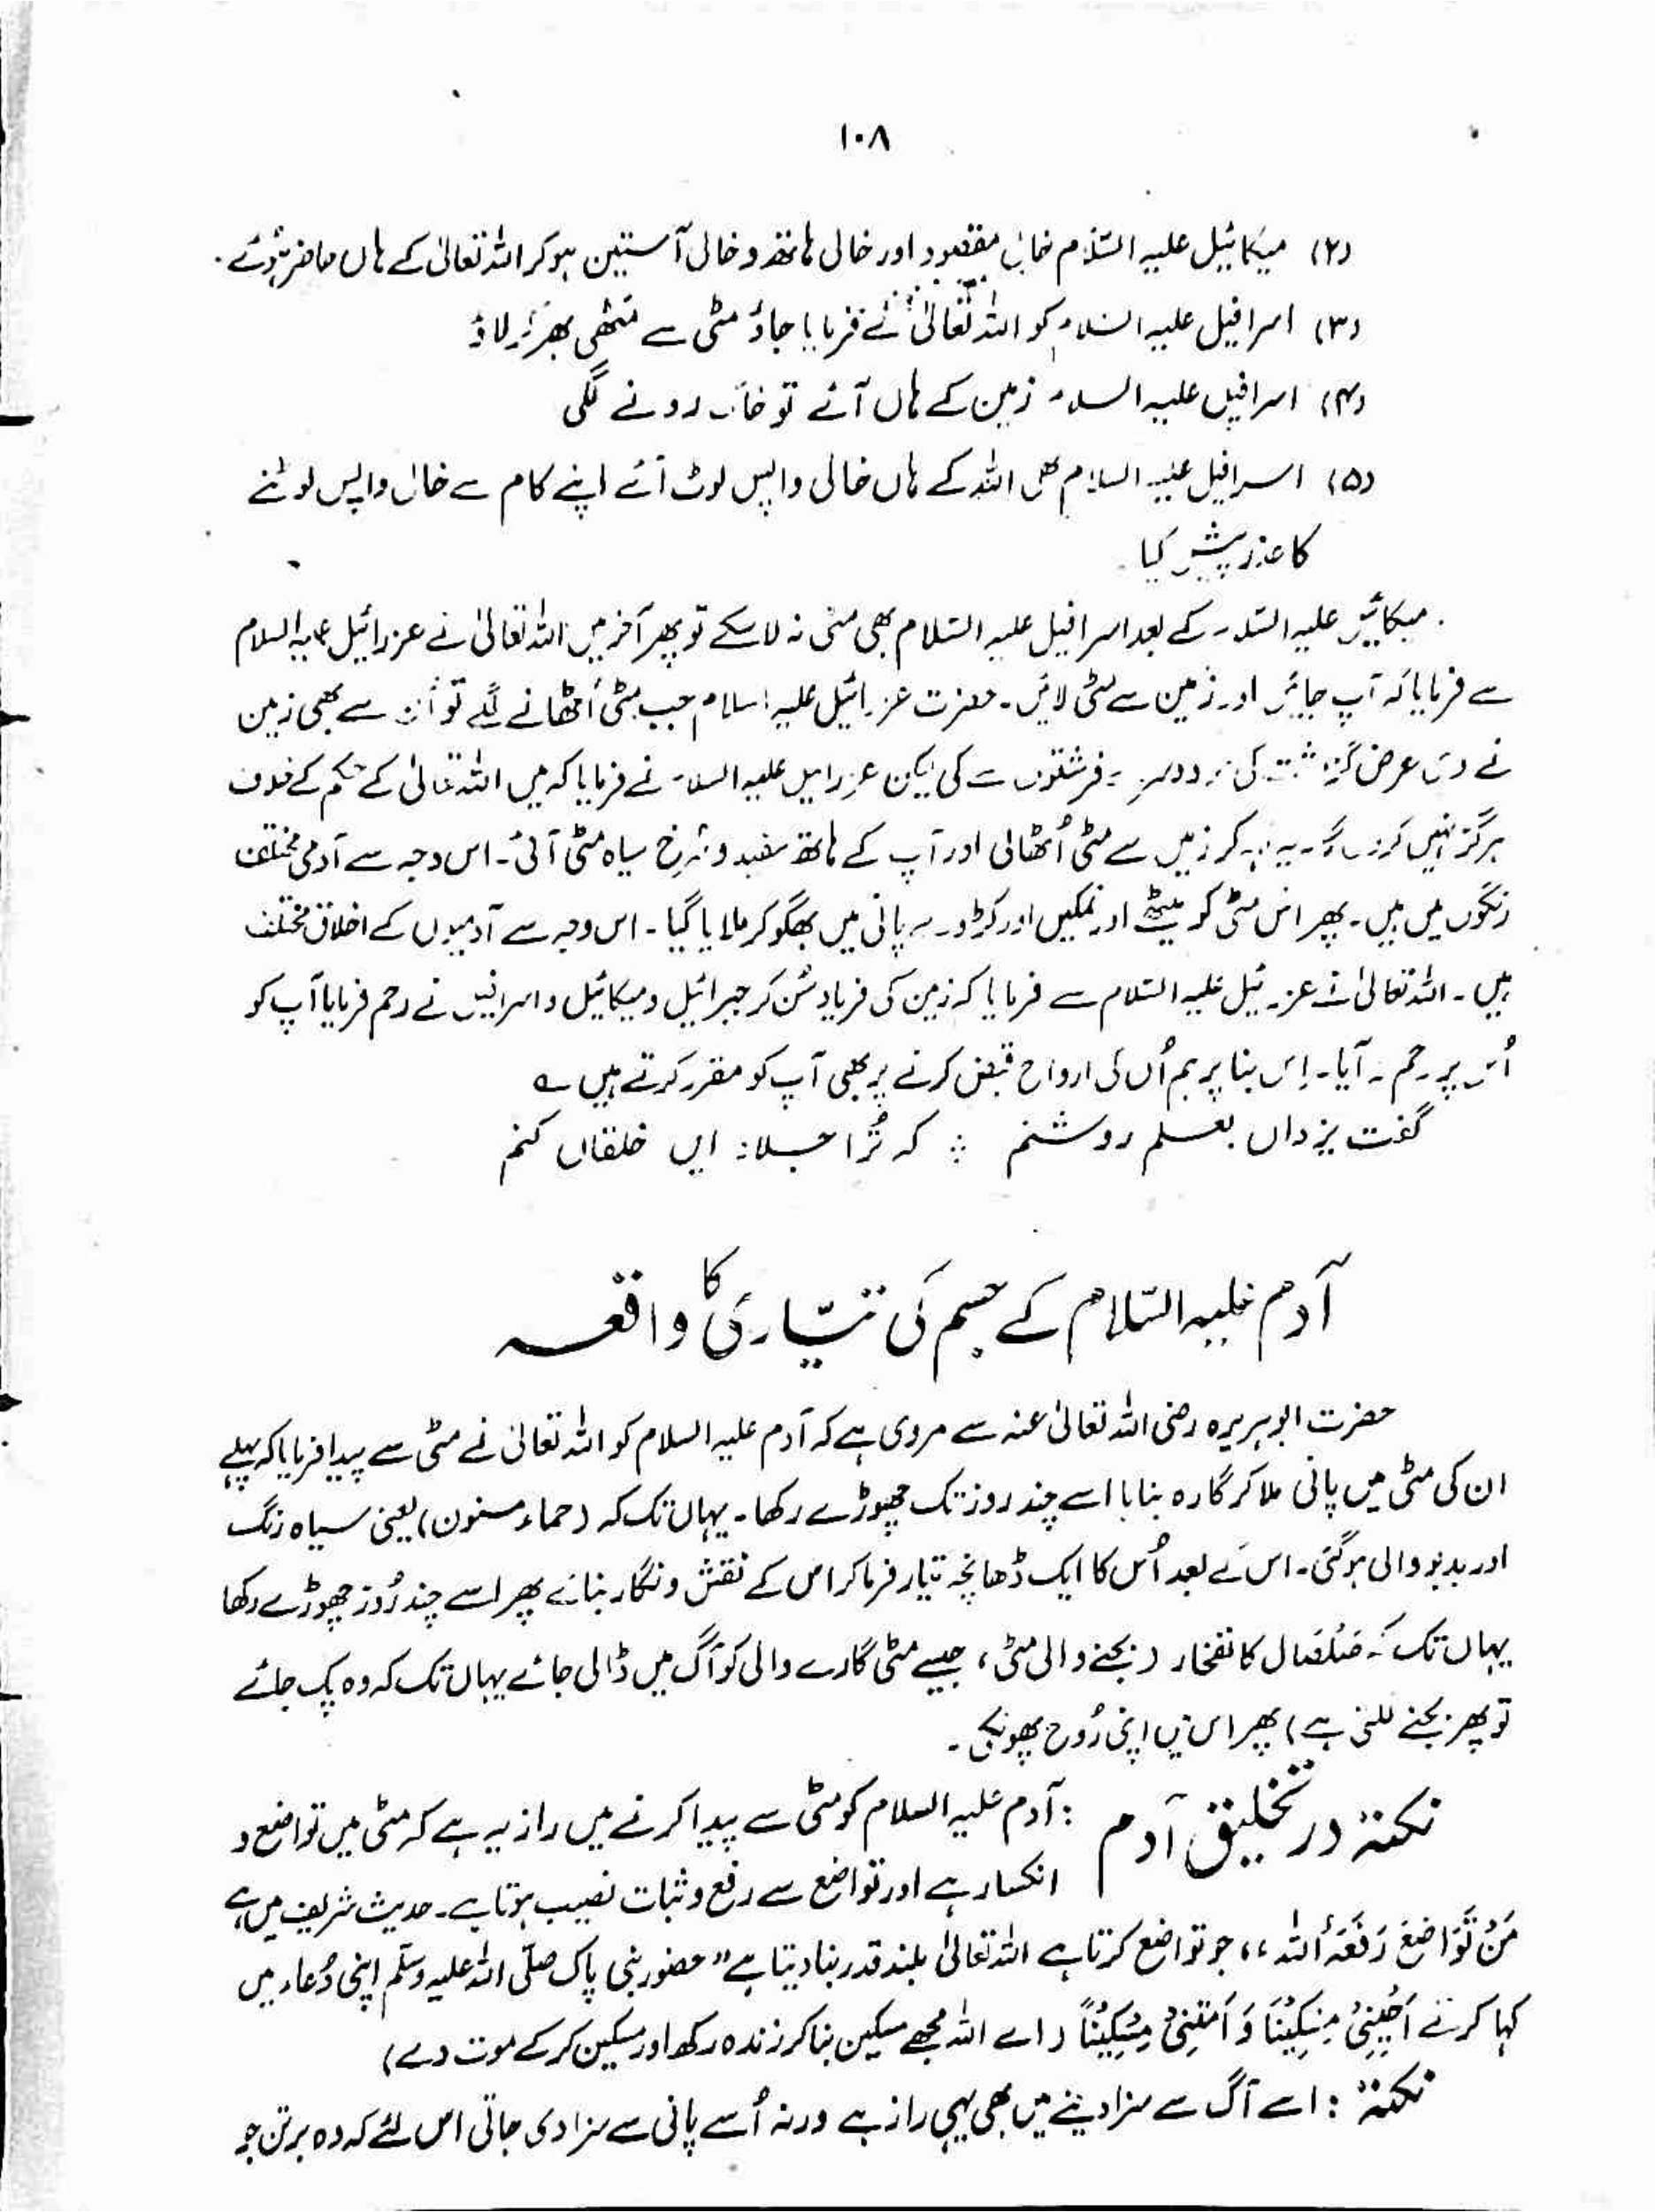 ۱۰۸
(۲) میکائیل علیہ السّلام خالی مقصود اور خالی ہاتھ و خالی آستین ہو کر اللہ تعالیٰ کے ہاں حاضر ہوئے.
(۳) اسرافیل علیہ السلام کو اللہ تعالیٰ نے فرمایا جاؤ مٹی سے مٹھی بھر کر لاؤ
(۴) اسرافیل علیہ السلام زمین کے ہاں آئے تو خاک رونے لگی
(۵) اسرافیل علیہ السلام بھی اللہ کے ہاں خالی واپس لوٹ آئے اپنے کام سے خالی واپس لوٹنے
کا عذر پیش کیا
میکائیل علیہ السّلام کے بعد اسرافیل علیہ السّلام بھی مٹی نہ لا سکے تو پھر آخر میں اللہ تعالیٰ نے عزرائیل علیہ السلام
سے فرمایا کہ آپ جائیں اور زمین سے مٹی لائیں۔ حضرت عزرائیل علیہ اسلام جب مٹی اُٹھانے لگے تو اُن سے بھی زمین
نے وہی عرض گزاشت کی دوسرے فرشتوں سے کی لیکن عزرایل علیہ السلام نے فرمایا کہ میں اللہ تعالیٰ کے حکم کے خلاف
ہرگز نہیں کروں گا۔ یہ کہہ کر زمیں سے مٹی اُٹھالی اور آپ کے ہاتھ سفید و سُرخ سیاہ مٹی آئی۔ اس وجہ سے آدمی مختلف
رنگوں میں ہیں۔ پھر اس مٹی کو میٹھے اور نمکیں اور کڑوے پانی میں بھگو کر ملایا گیا۔ اس وجہ سے آدمیوں کے اخلاق مختلف
ہیں۔ اللہ تعالیٰ نے عزرئیل علیہ السّلام سے فرمایا کہ زمین کی فریاد سُن کر جبرائیل و میکائیل و اسرافیل نے رحم فرمایا آپ کو
اُس پر رحم نہ آیا۔ اِس بنا پر ہم اُن کی ارواح قبض کرنے پر بھی آپ کو مقرر کرتے ہیں ؎
گفت یزداں بعلم روشنم ؞ کہ تُرا جلاد ایں خلقاں کنم
آدم علیہ السّلام کے جسم کی تیّاری کا واقعہ
حضرت ابوہریرہ رضی اللہ تعالیٰ عنہ سے مروی ہے کہ آدم علیہ السلام کو اللہ تعالیٰ نے مٹی سے پیدا فرمایا کہ پہلے
ان کی مٹی میں پانی ملا کر گارہ بنایا اسے چند روز تک چھوڑے رکھا۔ یہاں تک کہ (حماء مسنون) یعنی سیاہ رنگ
اور بدبو والی ہو گئی۔ اس کے بعد اُس کا ایک ڈھانچہ تیار فرما کر اس کے نقش و نگار بنائے پھر اسے چند رُوز چھوڑے رکھا
یہاں تک کہ صَلْصَال کالفخار (بجنے والی مٹی، جیسے مٹی گارے والی کو آگ میں ڈالی جائے یہاں تک کہ وہ پک جائے
تو پھر بجنے لگتی ہے) پھر اس میں اپنی رُوح پھونکی۔
نکتۂ در تخلیق آدم : آدم علیہ السلام کو مٹی سے پیدا کرنے میں راز یہ ہے کہ مٹی میں تواضع و
انکسار ہے اور تواضع سے رفع و ثبات نصیب ہوتا ہے۔ حدیث شریف میں ہے
مَنْ تَوَاضَعَ رَفَعَہُ اللہ ،، جو تواضع کرتا ہے اللہ تعالیٰ بلند قدر بنا دیتا ہے" حضور نبی پاک صلّی اللہ علیہ وسلّم اپنی دُعاء میں
کہا کرتے اَحْیِنِیْ مِسْکِیْنًا وَ اَمِتْنِیْ مِسْکِیْنًا (اے اللہ مجھے مسکین بنا کر زندہ رکھ اور مسکین کر کے موت دے)
نکتۂ : اسے آگ سے سزا دینے میں بھی یہی راز ہے ورنہ اُسے پانی سے سزا دی جاتی اس لئے کہ وہ برتن جو